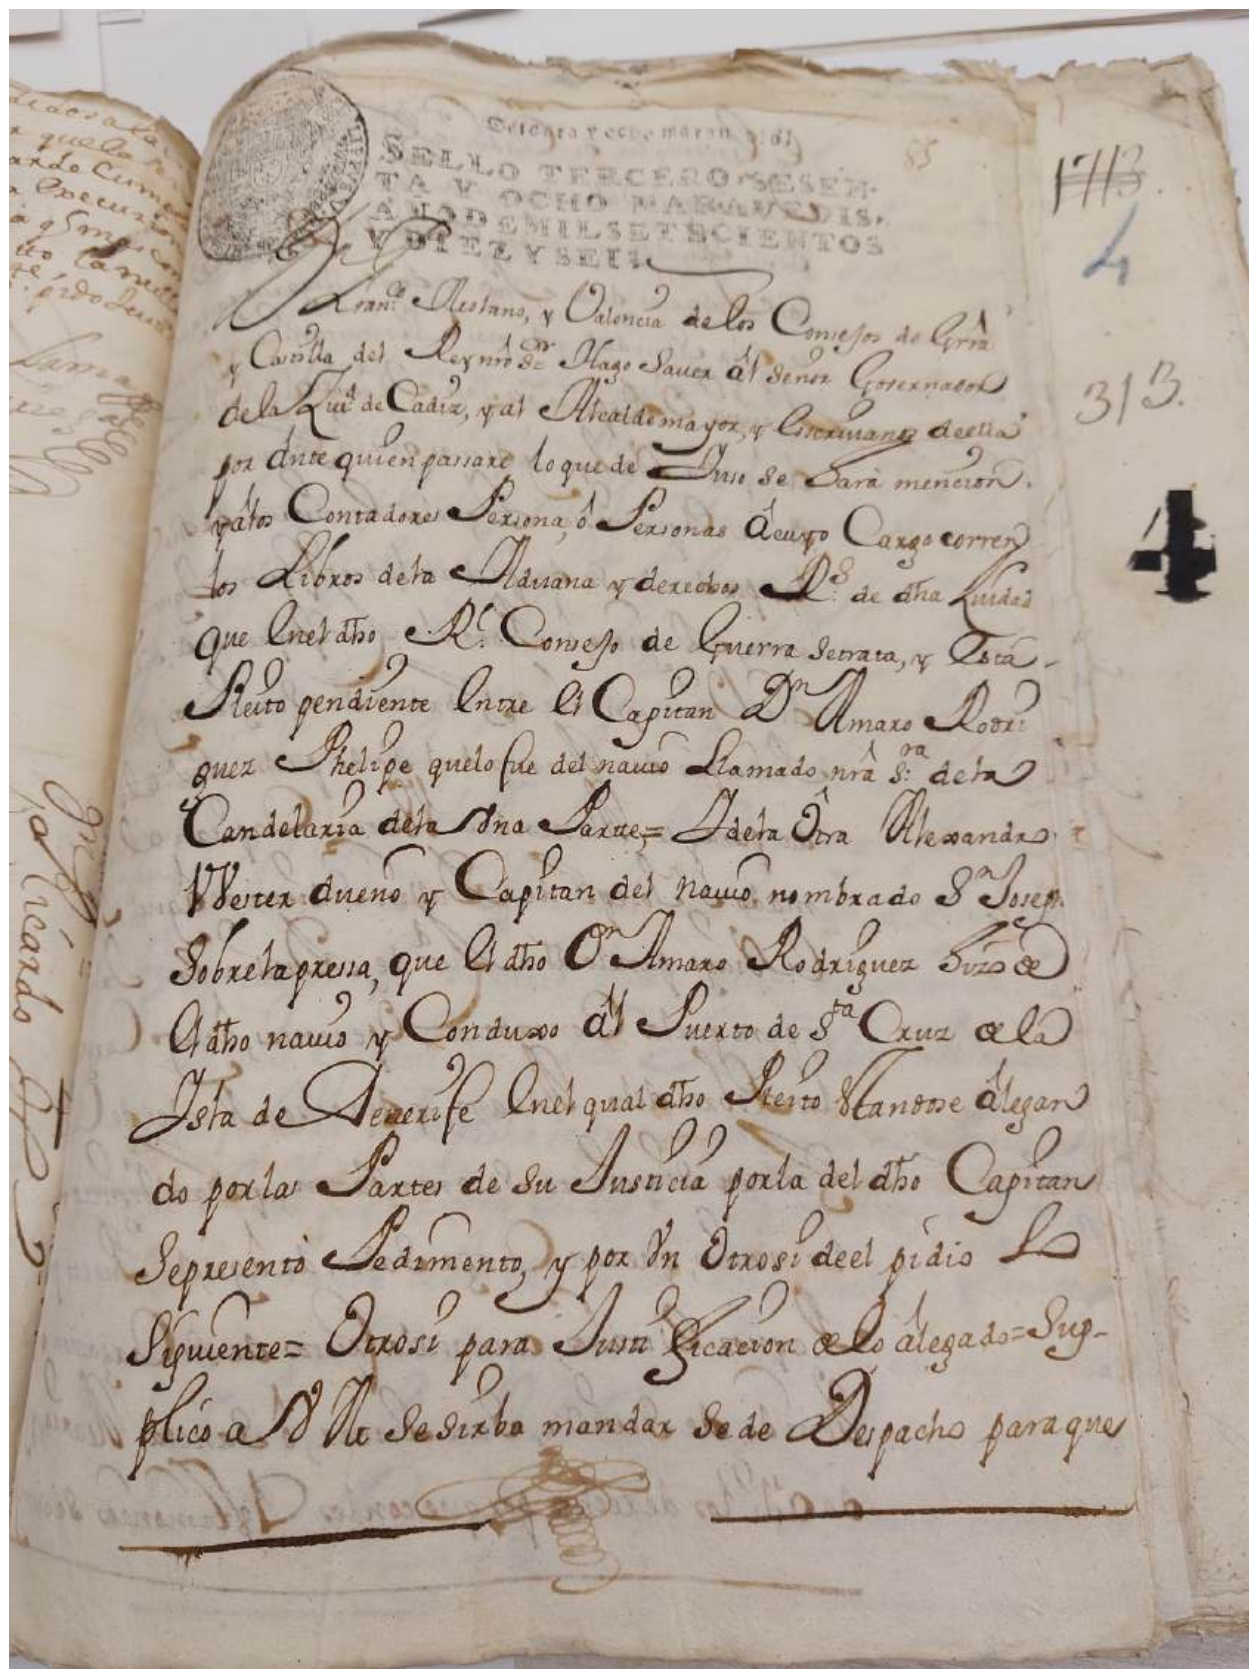 Sesenta y ocho marauedis
85
SELLO TERCERO SESEN-
TA Y OCHO MARAVEDIS,
AÑO DE MIL SETECIENTOS
Y DIEZ Y SEIS.
1713
4
313.
4
y Valencia de los Consejos de Grrâ
y Castilla del Reyñro Sr Hago Sauer âl Señor Governador
de la Ziud de Cadiz, y al Alcaldemayor, y Escriuano deella
por Ante quien passare lo que de Iuso se hara mencion.
y âlos Contadores Persona, ô Personas âcuyo Cargo corren
los Libros dela Aduana y derechos Rs. de dha Ziudad
que Enel dho Rl. Consejo de Guerra Setrata, y Esta
Pleito pendiente Entre El Capitan Dn Amaro Rodri
guez Phelipe quelo fue del nauio Llamado nrâ Sra. dela
Candelaria dela Vna Parte = Y dela Otra Alexandro
Wester dueño y Capitan del nauio nombrado Sn Joseph
Sobrelapressa, que El dho Dn Amaro Rodriguez hizo de
El dho nauio y Conduxo âl Puerto de Sta Cruz de la
Isla de Tenerife Enel qual dho Pleito Estandose âlegan
do porlas Partes de Su Iusticia porla del dho Capitan
Sepresentó Pedimento, y por Vn Otrosi deel pidio Lo
Siguiente = Otrosi para Iustificacion de Lo âlegado = Sup-
plico a V A. Sesirba mandar Sede Despacho paraque
Ricardo